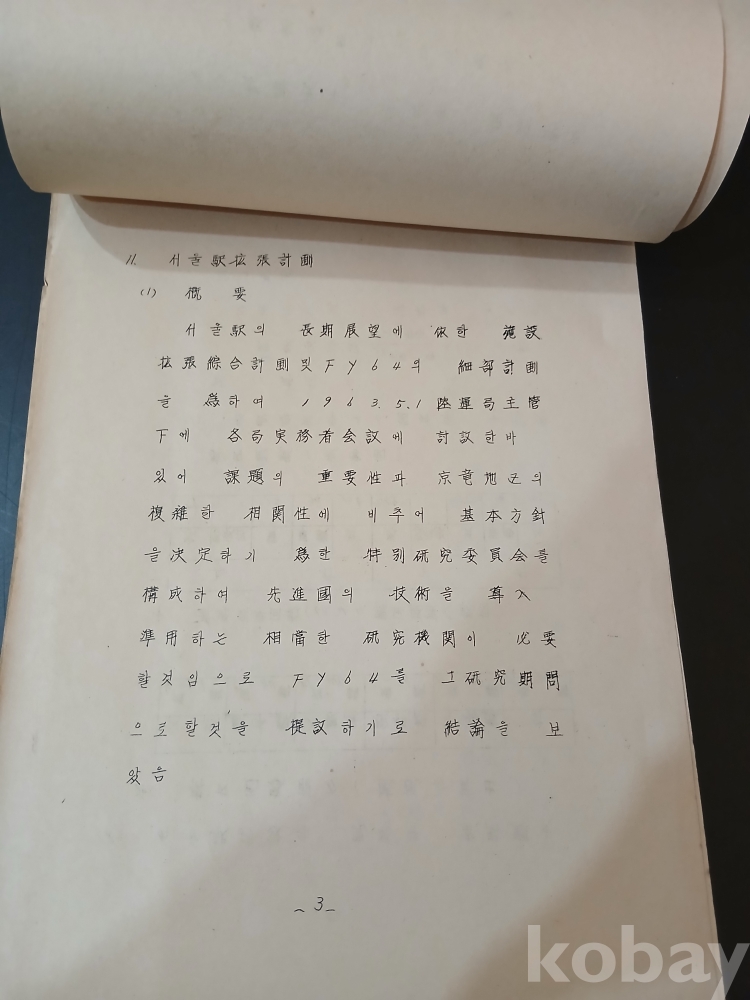 11. 서울駅拡張計画
(1) 概 要
서울駅의 長期展望에 依한 施設
拡張綜合計画및 FY64의 細部計画
을 爲하여 1963.5.1 陸運局主管
下에 各局実務者会議에 討議한바
있어 課題의 重要性과 京竜地区의
複雑한 相関性에 비추어 基本方針
을决定하기 爲한 特別研究委員会를
構成하여 先進國의 技術을 導入
準用하는 相當한 研究機関이 必要
할것임으로 FY64를 그研究期間
으로할것을 提議하기로 結論을 보
았음
-3-
kobay